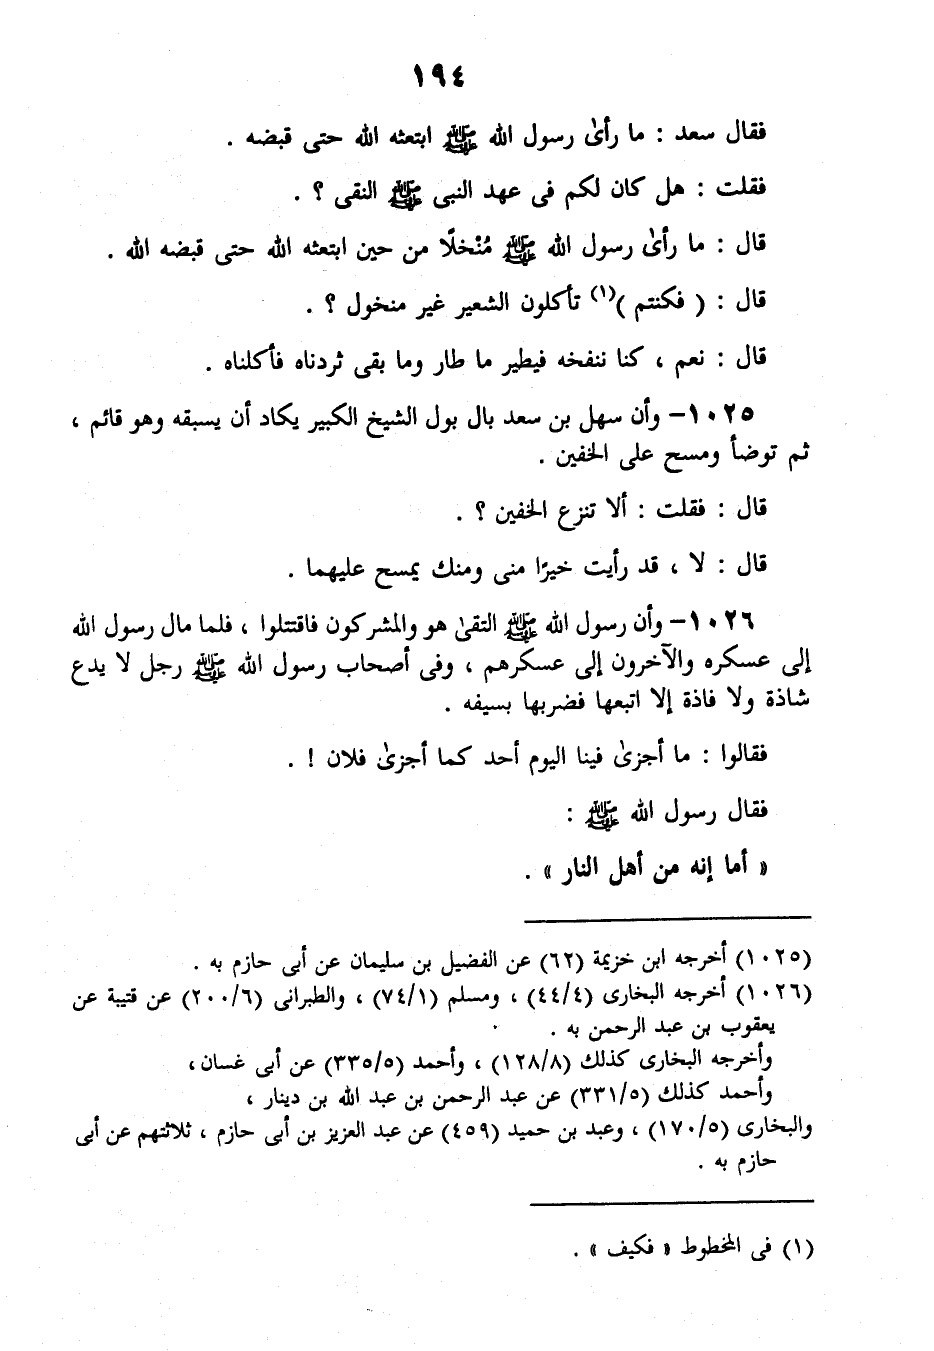 ١٩٤
فقال سعد : ما رأىٰ رسول الله ﷺ ابتعثه الله حتى قبضه .
فقلت : هل كان لكم فى عهد النبى ﷺ النقى ؟ .
قال : ما رأىٰ رسول الله ﷺ مُنْخلًا من حين ابتعثه الله حتى قبضه الله .
قال : ( فكنتم )(١) تأكلون الشعير غير منخول ؟ .
قال : نعم ، كنا ننفخه فيطير ما طار وما بقى ثردناه فأكلناه .
١٠٢٥– وأن سهل بن سعد بال بول الشيخ الكبير يكاد أن يسبقه وهو قائم ،
ثم توضأ ومسح على الخفين .
قال : فقلت : ألا تنزع الخفين ؟ .
قال : لا ، قد رأيت خيرًا منى ومنك يمسح عليهما .
١٠٢٦– وأن رسول الله ﷺ التقىٰ هو والمشركون فاقتتلوا ، فلما مال رسول الله
إلى عسكره والآخرون إلى عسكرهم ، وفى أصحاب رسول الله ﷺ رجل لا يدع
شاذة ولا فاذة إلا اتبعها فضربها بسيفه .
فقالوا : ما أجزىٰ فينا اليوم أحد كما أجزىٰ فلان ! .
فقال رسول الله ﷺ :
« أما إنه من أهل النار » .
(١٠٢٥) أخرجه ابن خزيمة (٦٢) عن الفضيل بن سليمان عن أبى حازم به .
(١٠٢٦) أخرجه البخارى (٤٤/٤) ، ومسلم (٧٤/١) ، والطبرانى (٢٠٠/٦) عن قتيبة عن
يعقوب بن عبد الرحمن به .
وأخرجه البخارى كذلك (١٢٨/٨) ، وأحمد (٣٣٥/٥) عن أبى غسان ،
وأحمد كذلك (٣٣١/٥) عن عبد الرحمن بن عبد الله بن دينار ،
والبخارى (١٧٠/٥) ، وعبد بن حميد (٤٥٩) عن عبد العزيز بن أبى حازم ، ثلاثتهم عن أبى
حازم به .
(١) فى المخطوط « فكيف » .